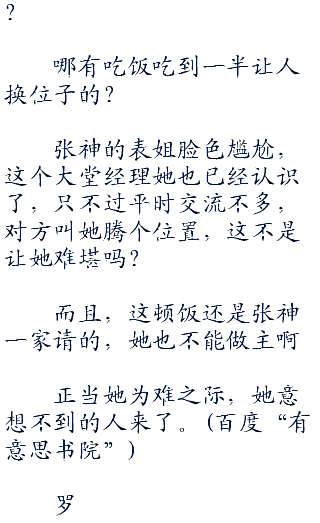 ?
哪有吃饭吃到一半让人
换位子的?
张神的表姐脸色尴尬,
这个大堂经理她也已经认识
了,只不过平时交流不多,
对方叫她腾个位置,这不是
让她难堪吗?
而且,这顿饭还是张神
一家请的,她也不能做主啊
正当她为难之际,她意
想不到的人来了。(百度“有
意思书院”)
罗